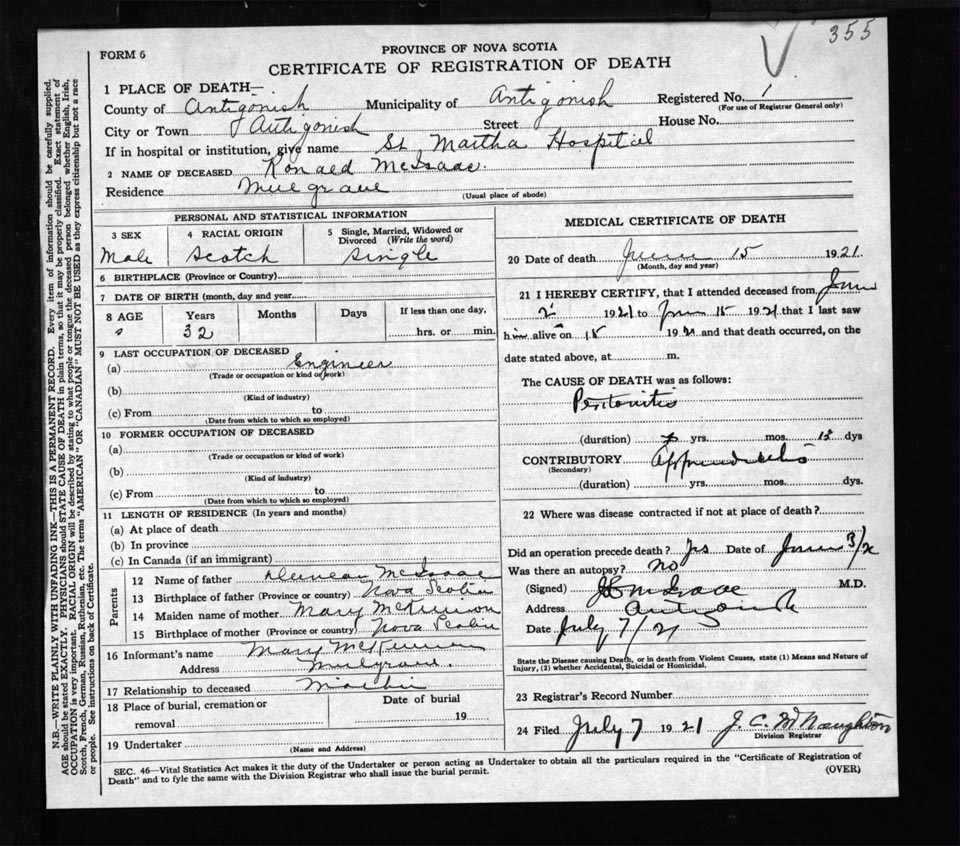 355
FORM 6
PROVINCE OF NOVA SCOTIA
CERTIFICATE OF REGISTRATION OF DEATH
1 PLACE OF DEATH—
County of Antigonish Municipality of Antigonish Registered No. 1
(For use of Registrar General only)
City or Town Antigonish Street House No.
If in hospital or institution, give name St Martha Hospital
2 NAME OF DECEASED Ronald McIsaac
Residence Mulgrave
(Usual place of abode)
PERSONAL AND STATISTICAL INFORMATION
3 SEX 4 RACIAL ORIGIN 5 Single, Married, Widowed or Divorced (Write the word)
Male Scotch Single
6 BIRTHPLACE (Province or Country)
7 DATE OF BIRTH (month, day and year)
8 AGE Years Months Days If less than one day,
32 hrs. or min.
9 LAST OCCUPATION OF DECEASED
(a) Engineer
(Trade or occupation or kind of work)
(b)
(Kind of industry)
(c) From to
(Date from which to which so employed)
10 FORMER OCCUPATION OF DECEASED
(a)
(Trade or occupation or kind of work)
(b)
(Kind of industry)
(c) From to
(Date from which to which so employed)
11 LENGTH OF RESIDENCE (In years and months)
(a) At place of death
(b) In province
(c) In Canada (if an immigrant)
Parents
12 Name of father Duncan McIsaac
13 Birthplace of father (Province or country) Nova Scotia
14 Maiden name of mother Mary McKinnon
15 Birthplace of mother (Province or country) Nova Scotia
16 Informant's name Mary McKinnon
Address Mulgrave.
17 Relationship to deceased Mother
18 Place of burial, cremation or removal Date of burial
19
19 Undertaker
(Name and Address)
MEDICAL CERTIFICATE OF DEATH
20 Date of death June 15 1921
(Month, day and year)
21 I HEREBY CERTIFY, that I attended deceased from June
2 1921 to June 15 1921 that I last saw
him alive on 15 1921 and that death occurred, on the
date stated above, at m.
The CAUSE OF DEATH was as follows:
Peritonitis
(duration) yrs. mos. 15 dys
CONTRIBUTORY Appendicitis
(Secondary)
(duration) yrs. mos. dys.
22 Where was disease contracted if not at place of death?
Did an operation precede death? Yes Date of June 3/21
Was there an autopsy? No
(Signed) McIsaac M.D.
Address Antigonish
Date July 7/21
State the Disease causing Death, or in death from Violent Causes, state (1) Means and Nature of
Injury, (2) whether Accidental, Suicidal or Homicidal.
23 Registrar's Record Number
24 Filed July 7 1921 J. C. McNaughton
Division Registrar
SEC. 46—Vital Statistics Act makes it the duty of the Undertaker or person acting as Undertaker to obtain all the particulars required in the "Certificate of Registration of
Death" and to fyle the same with the Division Registrar who shall issue the burial permit.
(OVER)
N.B.—WRITE PLAINLY WITH UNFADING INK—THIS IS A PERMANENT RECORD. Every item of information should be carefully supplied.
AGE should be stated EXACTLY. PHYSICIANS should STATE CAUSE OF DEATH in plain terms, so that it may be properly classified. Exact statement of
OCCUPATION is very important. RACIAL ORIGIN will be described by stating to what people or tongue the deceased person belonged whether English, Irish,
Scotch, French, German, Russian, Ruthenian, etc. The terms "AMERICAN" OR "CANADIAN" MUST NOT BE USED as they express citizenship but not a race
or people. See instructions on back of Certificate.